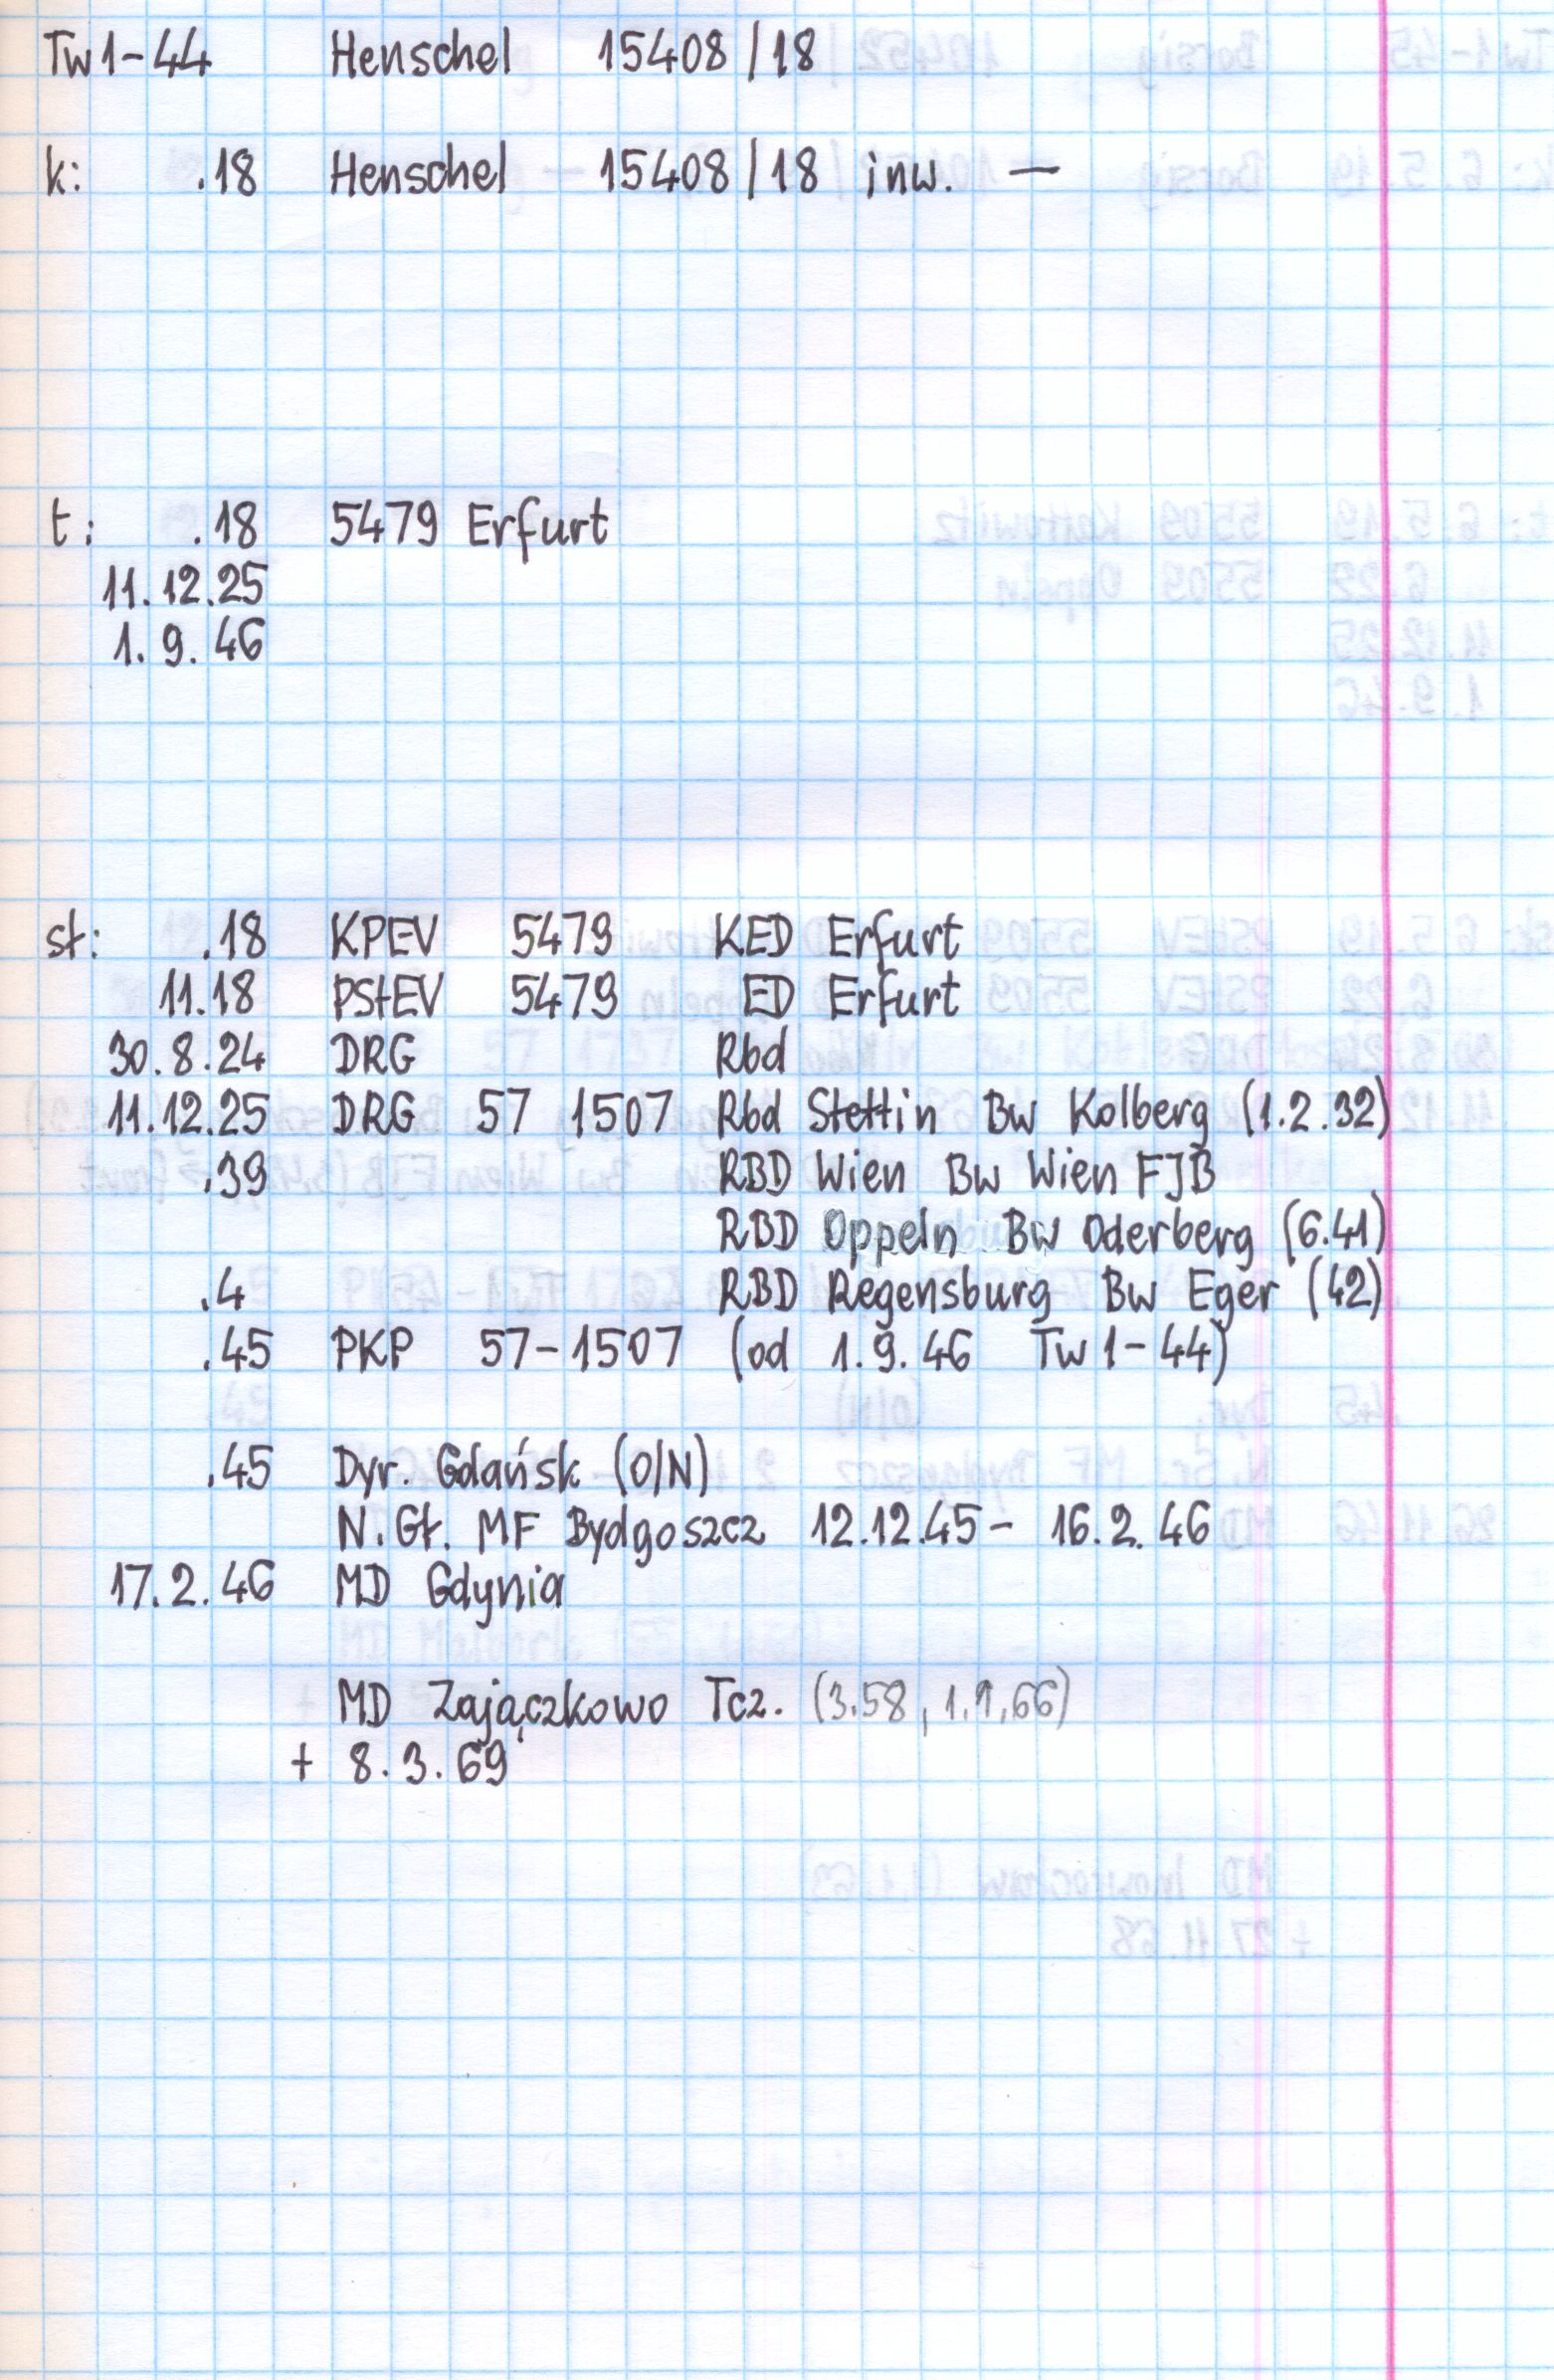 Tw1-44 Henschel 15408/18
k: .18 Henschel 15408/18 inw. —
t: .18 5479 Erfurt
11.12.25
1.9.46
st: .18 KPEV 5479 KED Erfurt
11.18 PStEV 5479 ED Erfurt
30.8.24 DRG Rbd
11.12.25 DRG 57 1507 Rbd Stettin Bw Kolberg (1.2.32)
.39 RBD Wien Bw Wien FJB
RBD Oppeln Bw Oderberg (6.41)
.4 RBD Regensburg Bw Eger (42)
.45 PKP 57-1507 (od 1.9.46 Tw1-44)
.45 Dyr. Gdańsk (O/N)
N.Gł. MF Bydgoszcz 12.12.45- 16.2.46
17.2.46 MD Gdynia
MD Zajączkowo Tcz. (3.58, 1.1.66)
+ 8.3.69